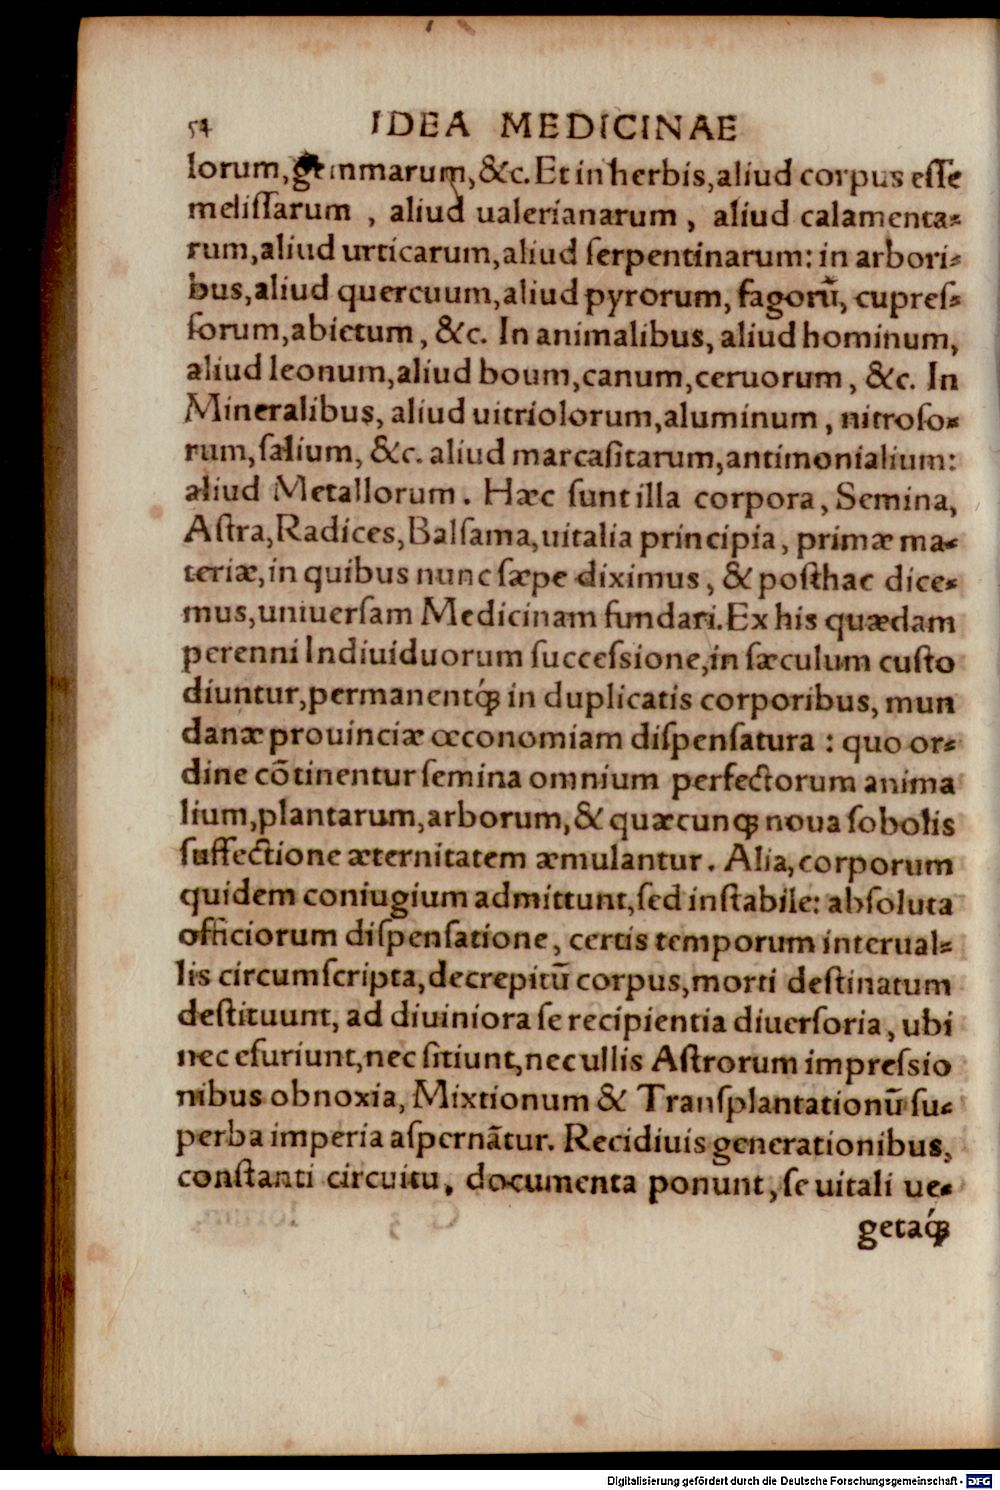 54 IDEA MEDICINAE
lorum, gemmarum, &c. Et in herbis, aliud corpus eſſe
meliſſarum , aliud ualerianarum , aliud calamenta⸗
rum, aliud urticarum, aliud ſerpentinarum: in arbori⸗
bus, aliud quercuum, aliud pyrorum, fagorũ, cupreſ⸗
ſorum, abietum , &c. In animalibus, aliud hominum,
aliud leonum, aliud boum, canum, ceruorum , &c. In
Mineralibus, aliud uitriolorum, aluminum , nitroſo⸗
rum, ſalium, &c. aliud marcaſitarum, antimonialium:
aliud Metallorum. Hæc ſunt illa corpora, Semina,
Aſtra, Radices, Balſama, uitalia principia, primæ ma⸗
teriæ, in quibus nunc ſæpe diximus, & poſthac dice⸗
mus, uniuerſam Medicinam fundari. Ex his quædam
perenni Indiuiduorum ſucceſsione, in ſæculum cuſto
diuntur, permanentq́ꝫ in duplicatis corporibus, mun
danæ prouinciæ œconomiam diſpenſatura : quo or⸗
dine cõtinentur ſemina omnium perfectorum anima
lium, plantarum, arborum, & quæcunqꝫ noua ſobolis
ſuffectione æternitatem æmulantur. Alia, corporum
quidem coniugium admittunt, ſed inſtabile: abſoluta
officiorum diſpenſatione, certis temporum interual⸗
lis circumſcripta, decrepitũ corpus, morti deſtinatum
deſtituunt, ad diuiniora ſe recipientia diuerſoria, ubi
nec eſuriunt, nec ſitiunt, nec ullis Aſtrorum impreſsio
nibus obnoxia, Mixtionum & Tranſplantationũ ſu⸗
perba imperia aſpernãtur. Recidiuis generationibus,
conſtanti circuitu, documenta ponunt, ſe uitali ue⸗
getaq́ꝫ
Digitalisierung gefördert durch die Deutsche Forschungsgemeinschaft - DFG